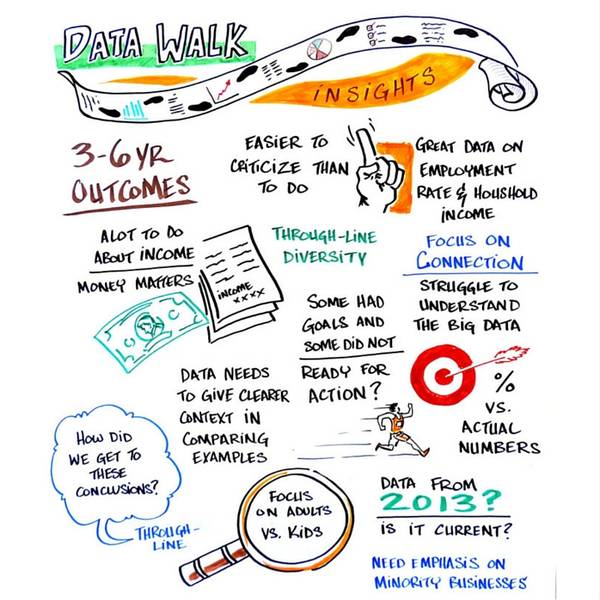 DATA WALK
INSIGHTS
3-6 YR
OUTCOMES
EASIER TO
CRITICIZE THAN
TO DO
GREAT DATA ON
EMPLOYMENT
RATE & HOUSHOLD
INCOME
ALOT TO DO
ABOUT INCOME
MONEY MATTERS
INCOME
XXXX
THROUGH-LINE
DIVERSITY
FOCUS ON
CONNECTION
STRUGGLE TO
UNDERSTAND
THE BIG DATA
SOME HAD
GOALS AND
SOME DID NOT
READY FOR
ACTION?
% 
VS.
ACTUAL
NUMBERS
DATA NEEDS
TO GIVE CLEARER
CONTEXT IN
COMPARING
EXAMPLES
HOW DID
WE GET TO
THESE
CONCLUSIONS?
THROUGH-
LINE
FOCUS
ON ADULTS
VS. KIDS
DATA FROM
2013?
IS IT CURRENT?
NEED EMPHASIS ON
MINORITY BUSINESSES